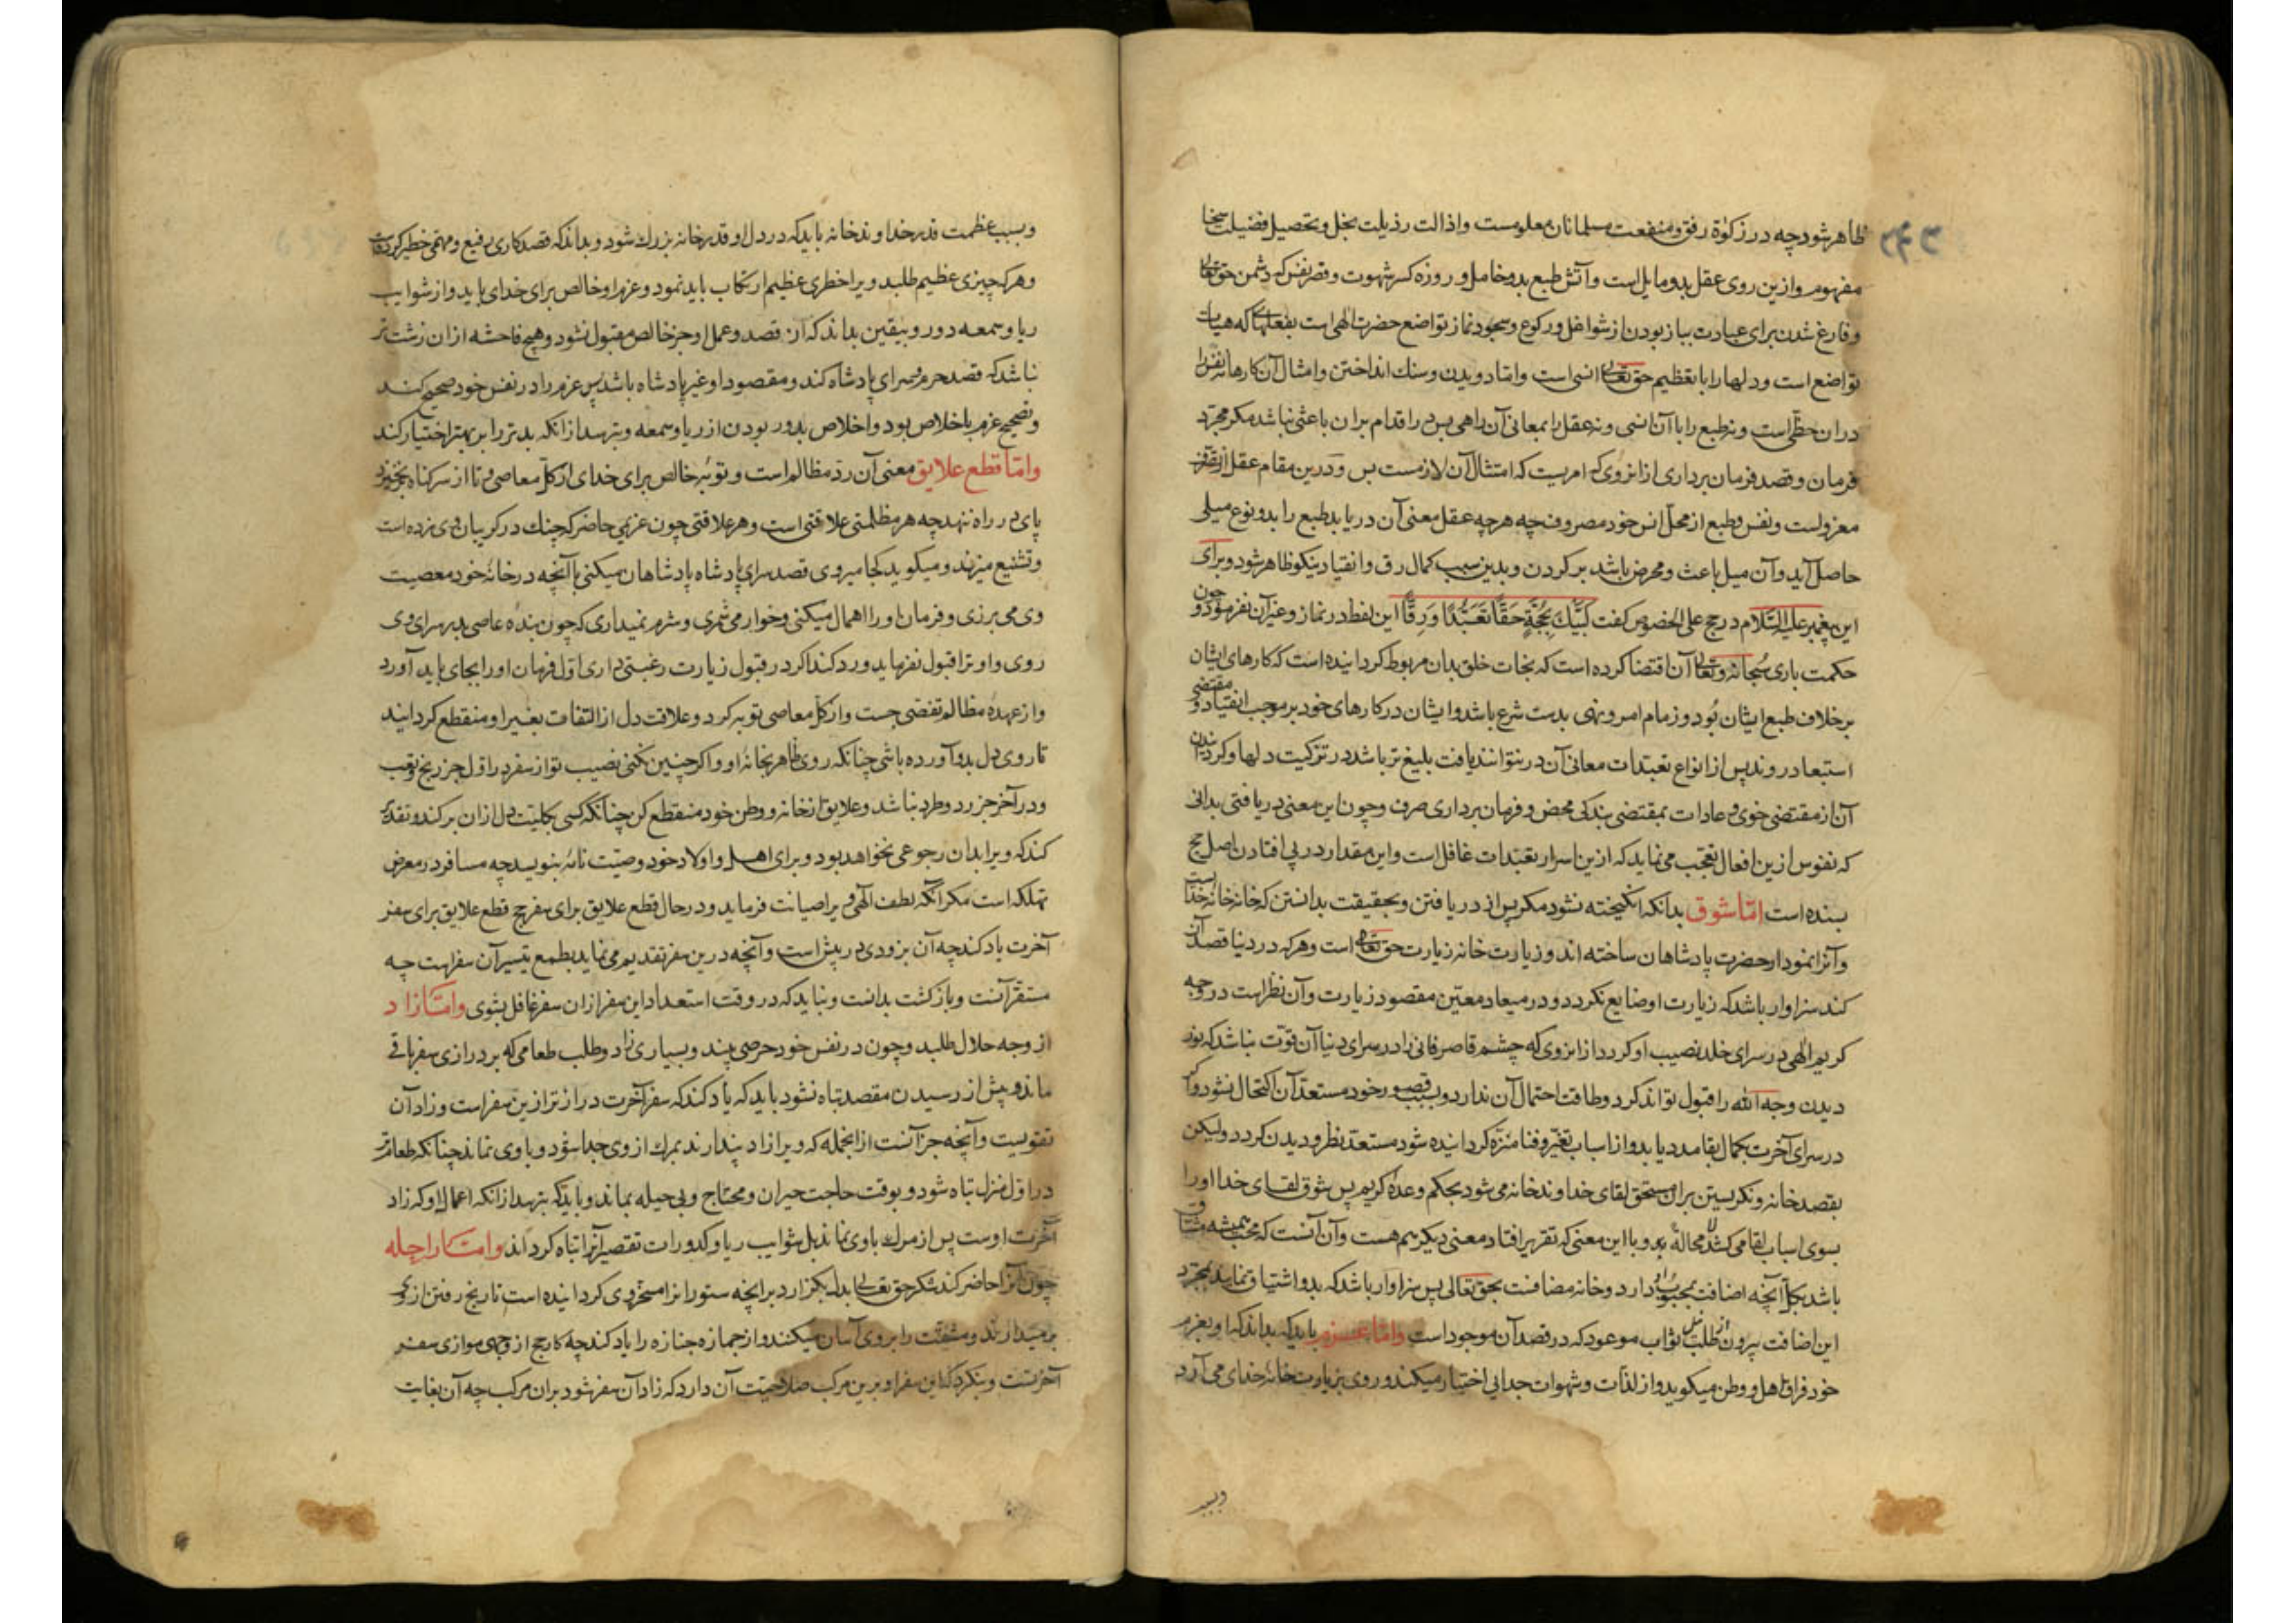 ظاهر شود چه در زکوة رفق و منفعت مسلمانان معلومست و ازالت رذیلت بخل و تحصیل فضیلت سخا
مفهوم و ازین روی عقل بدو مایل است و آتش طبع بدو خامل و روزه کسر شهوت و قهر نفس که دشمن حق تعالی
و فارغ شدن برای عبادت بباز بودن از شواغل و رکوع و سجود نماز تواضع حضرت الهی است بفعلهایی که هیات
تواضع است و دلها را با تعظیم حق تعالی انسی است و امّا دویدن و سنك انداختن و امثال آن کارها نه نفس را
در ان حظّی است و نه طبع را با آن انسی و نه عقل را بمعانی آن راهی پس در اقدام بر ان باعثی نباشد مکر مجرّد
فرمان و قصد فرمان برداری از انروی که امریست که امتثال آن لازمست بس و درین مقام عقل از تصرف
معزولست و نفس و طبع از محلّ انس خود مصروف چه هرچه عقل معنی آن دریابد طبع را بدو نوع میلی
حاصل آید و آن میل باعث و محرض باشد بر کردن و بدین سبب کمال رق و انقیاد نیکو ظاهر شود و برای
این پیغمبر علیه السّلام در حج علی الخصوص کفت لَبَّیْكَ بِحَجَّةٍ حَقًّا تَعَبُّدًا وَ رِقًّا این لفظ در نماز و غیر آن نفرمود و چون
حکمت باری سُبحانه و تعالی آن اقتضا کرده است که نجات خلق بدان مربوط کردانیده است که کارهای ایشان
بر خلاف طبع ایشان بُود و زمام امر و نهی بدست شرع باشد و ایشان در کارهای خود بر موجب انقیاد و مقتضی
استبعاد روند پس از انواع تعبّدات معانی آن در نتوانند یافت بلیغ تر باشد در تزکیت دلها و کردانیدن
آن از مقتضی خوی و عادات بمقتضی بندکی محض و فرمان برداری صرف و چون این معنی دریافتی بدانی
که نفوس ازین افعال تعجّب می نماید که ازین اسرار تعبّدات غافل است و این مقدار در پی افتادن اصل حج
بسنده است امّا شوق بدانکه انکیخته نشود مکر پس از دریافتن و بحقیقت بدانستن که خانه خانه خداست
و آنرا نمودار حضرت پادشاهان ساخته اند و زیارت خانه زیارت حق تعالی است و هرکه در دنیا قصد آن
کند سزاوار باشد که زیارت او ضایع نکردد و در میعاد معیّن مقصود زیارت و آن نظر است در وجه
کریم الهی در سرای خلد نصیب او کردد از انروی که چشم قاصر فانی را در سرای دنیا آن قوّت نباشد که نور
دیدن وجه الله را قبول تواند کرد و طاقت احتمال آن ندارد و بسبب قصور خود مستعدّ آن اکتحال نشود و اکر
در سرای آخرت بکمال بقا مدد یابد و از اسباب تغیّر و فنا منزّه کردانیده شود مستعدّ نظر و دیدن کردد ولیکن
بقصد خانه و نکریستن بر ان مستحق لقای خداوند خانه می شود بحکم وعدۀ کریم پس شوق لقای خدا او را
بسوی اسباب لقا می کشد لا محالة بدو با این معنی که تقریر افتاد معنی دیکر هم هست و آن آنست که محب همیشه مشتاق
باشد بکلّ آنچه اضافت بمحبوب او دارد و خانه مضافست بحق تعالی پس سزاوار باشد که بدو اشتیاق نماید بمجرّد
این اضافت بیرون از طلب نیل ثواب موعود که در قصد آن موجود است و امّا عزم باید که بداند که او بعزم
خود فراق اهل و وطن میکوید و از لذّات و شهوات جدایی اختیار میکند و روی بزیارت خانۀ خدای می آرد
و بسبب
و بسبب عظمت قدر خداوند خانه باید که در دل او قدر خانه بزرك شود و بداند که قصد کاری رفیع و مهمّی خطیر کرده است
و هرکه چیزی عظیم طلبد ویرا خطری عظیم ارتکاب باید نمود و عزم او خالص برای خدای باید و از شوایب
ریا و سمعه دور و بیقین بداند که از قصد و عمل او جز خالص مقبول نشود و هیچ فاحشه از ان زشت تر
نباشد که قصد حرم و سرای پادشاه کند و مقصود او غیر پادشاه باشد پس عزم را در نفس خود صحیح کند
و تصحیح عزم باخلاص بود و اخلاص بدور بودن از ریا و سمعه و بترسد از انکه بدتر را بر بهتر اختیار کند
و امّا قطع علایق معنی آن ردّ مظالم است و توبۀ خالص برای خدای از کلّ معاصی و تا از سر کناه برنخیزد
پای در راه ننهد چه هر مظلمتی علاقتی است و هر علاقتی چون غریمی حاضر که چنك در کریبان وی زده است
و تشنیع میزند و میکوید کجا میروی قصد سرای پادشاه پادشاهان میکنی با آنچه در خانۀ خود معصیت
وی می برزی و فرمان او را اهمال میکنی و خوار می شمری و شرم نمیداری که چون بندۀ عاصی بدر سرای وی
روی و او ترا قبول نفرماید و رد کند اکر در قبول زیارت رغبتی داری اوّل فرمان او را بجای باید آورد
و از عهدۀ مظالم تفصّی جست و از کلّ معاصی توبه کرد و علاقت دل از التفات بغیر او منقطع کردانید
تا روی دل بدو آورده باشی چنانکه روی ظاهر بخانۀ او و اکر چنین نکنی نصیب تو از سفر در اوّل جز رنج و تعب
و در آخر جز رد و طرد نباشد و علایق از خانه و وطن خود منقطع کن چنانکه کسی بکلیت دل از ان برکند و تقدیر
کند که ویرا بدان رجوعی نخواهد بود و برای اهل و اولاد خود وصیّت نامۀ بنویسد چه مسافر در معرض
تهلکه است مکر آنکه لطف آلهی ویرا صیانت فرماید و در حال قطع علایق برای سفر حج قطع علایق برای سفر
آخرت یاد کند چه آن بزودی در پیش است و آنچه درین سفر تقدیم می نماید بطمع تیسیر آن سفراست چه
مستقرّ آنست و بازکشت بدانست و نباید که در وقت استعداد این سفر از ان سفر غافل بشوی و امّا زاد
از وجه حلال طلبد و چون در نفس خود حرصی بیند و بسیاری زاد و طلب طعامی که بر درازی سفر باقی
ماند و پیش از رسیدن مقصد تباه نشود باید که یاد کند که سفر آخرت درازتر ازین سفر است و زاد آن
تقویست و آنچه جز آنست از انجمله که ویرا زاد پندارند بمرك از وی جدا شود و با وی نماند چنانکه طعام تر
در اوّل منزل تباه شود و بوقت حاجت حیران و محتاج و بی حیله بماند و باید که بترسد از انکه اعمال او که زاد
آخرت اوست پس از مرك با وی نماند بل شوایب ریا و کدورات تقصیر آنرا تباه کرداند و امّا راحله
چون آنرا حاضر کند شکر حق تعالی بدل بکزارد بر انچه ستور انرا مسخّر وی کردانیده است تا رنج رفتن از وی
برمیدارند و مشقّت را بروی آسان میکنند و از جمازه جنازه را یاد کند چه کار حج از وجهی موازی سفر
آخرتست و بنکرد که این سفر او برین مرکب صلاحیّت آن دارد که زاد آن سفر شود بر ان مرکب چه آن بغایت